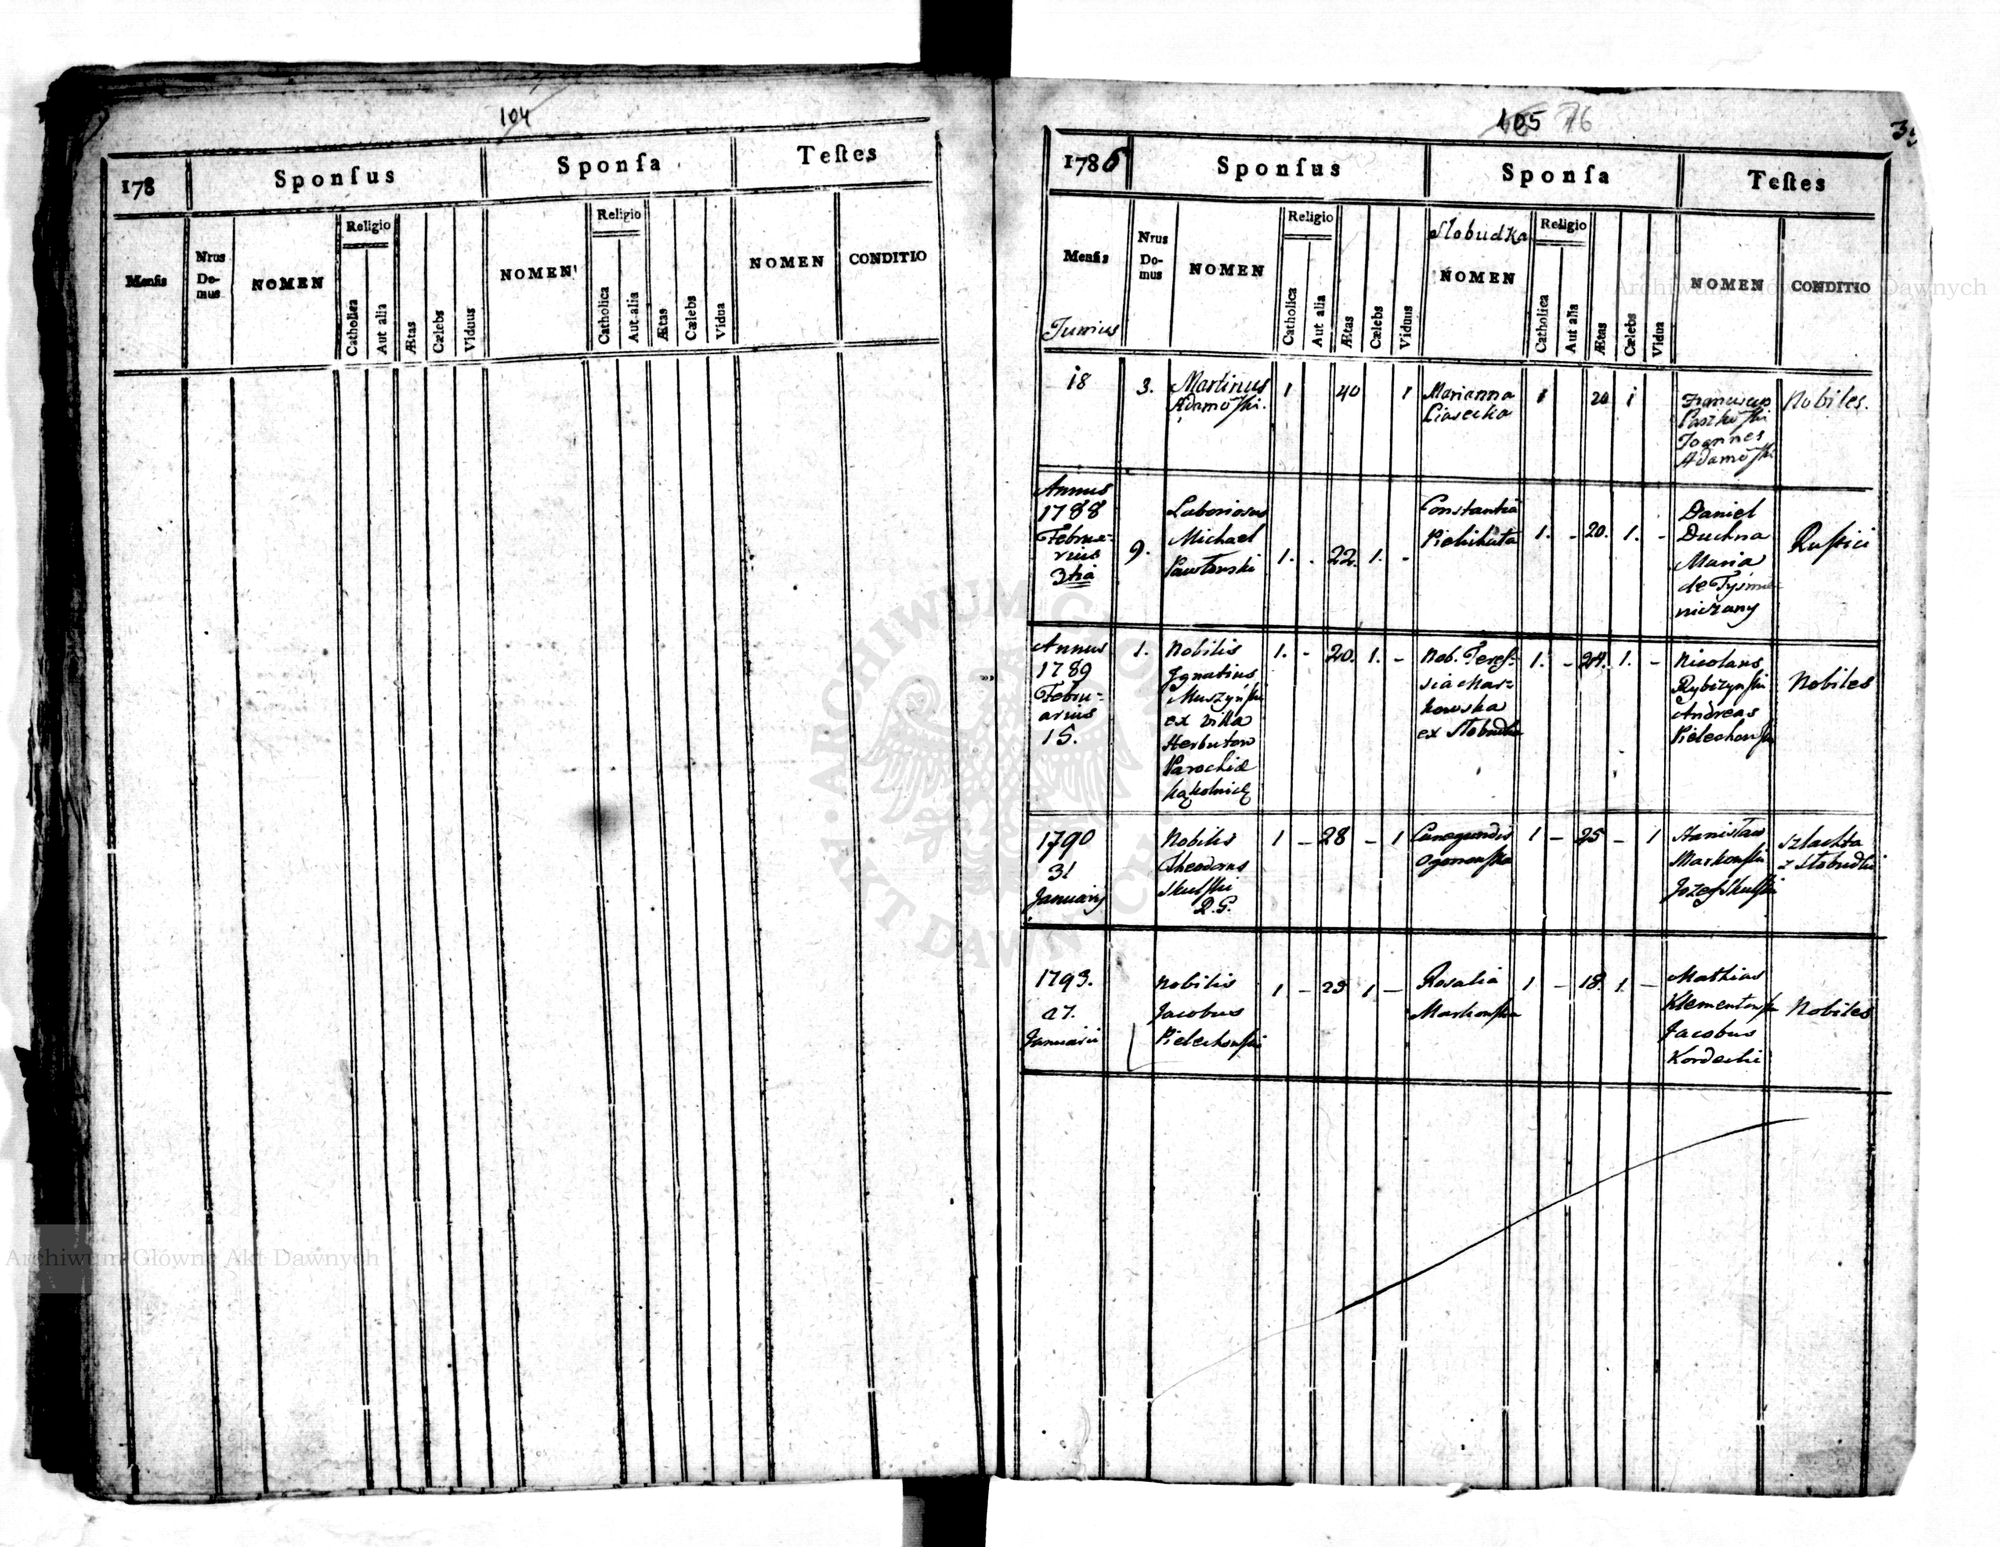 104
178
Sponſus
Sponſa
Teſtes
Menſis
Nrus Do-mus
NOMEN
Religio
Catholica
Aut alia
Ætas
Cælebs
Viduus
NOMEN
Religio
Catholica
Aut alia
Ætas
Cælebs
Vidua
NOMEN
CONDITIO
105 76
1786
Sponſus
Sponſa
Teſtes
Menſis
Junius
Nrus Do-mus
NOMEN
Religio
Catholica
Aut alia
Ætas
Cælebs
Viduus
Slobudka
NOMEN
Religio
Catholica
Aut alia
Ætas
Cælebs
Vidua
NOMEN
CONDITIO
18
3.
Martinus
Adamoſki.
1
40
1
Marianna
Liasecka
1
20
1
Franciscus
Paszkoſki
Joannes
Adamoſki
Nobiles.
Annus
1788
Februa-
rius
3tia
9.
Laboriosus
Michael
Pawłowski
1. - 22. 1. -
Constantia
1. - 20. 1. -
Daniel
Duchna
Maria
de Tyśmie-
niczany
Ruſtici
Annus
1789
Febru-
arius
15.
1.
Nobilis
Ignatius
Muszyńſki
ex villa
Herbutow
Parochiæ
1. - 20. 1. -
Nob. Tereſ-
sia Mar-
kowska
ex Słobudka
1. - 24. 1. -
Nicolaus
Rybczyńſki
Andreas
Pielechowſki
Nobiles
1790
31
Januarij
Nobilis
Theodorus
Skulſki
1 - 28 - 1
Cunegundis
Ogonowſka
1 - 25 - 1
Stanisław
Markowſki
Jozef Skulſki
szlachta
z Słobudki
1793.
27.
Januarii
Nobilis
Jacobus
Pielechowſki
1 - 23 1. -
Rosalia
Markowſka
1 - 18. 1. -
Mathias
Klementowſki
Jacobus
Kordecki
Nobiles
ARCHIWUM GŁÓWNE AKT DAWNYCH
Archiwum Główne Akt Dawnych
Archiwum Główne Akt Dawnych